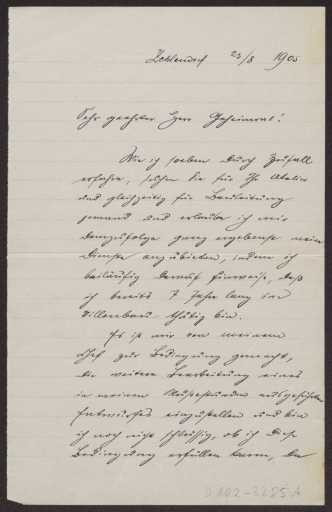 Zehlendorf 23/8 1905
Sehr geehrter Herr Geheimrat!
Wie ich soeben durch Zufall
erfahre, suchen Sie für Ihr Atelier
und gleichzeitig für Bauleitung
jemand und erlaube ich mir
demzufolge ganz ergebenst meine
Dienste anzubieten, indem ich
beiläufig darauf hinweise, daß
ich bereits 7 Jahre lang im
Villenbau thätig bin.
Es ist mir von meinem
Chef zur Bedingung gemacht,
die weitere Bearbeitung eines
in meinen Mußestunden ausgeführten
Entwurfes einzustellen und bin
ich noch nicht schlüssig, ob ich diese
Bedingung erfüllen kann, da